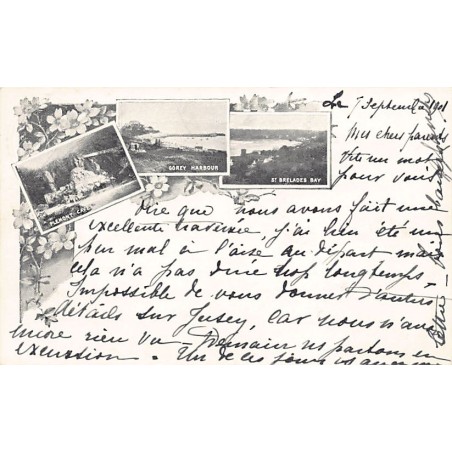 GOREY HARBOUR
ST BRELADES BAY
PLEMONT CAVES
Le 7 Septembre 1901
Mes chers parents
Vite un mot
pour vous
dire que nous avons fait une
excellente traversée, j'ai bien été un
peu mal à l'aise au départ mais
cela n'a pas duré trop longtemps -
Impossible de vous donner d'autres
détails sur Jersey, car nous n'avons
encore rien vu - Demain ns partons en
excursion. Un de ces jours vs aurez une
lettre -